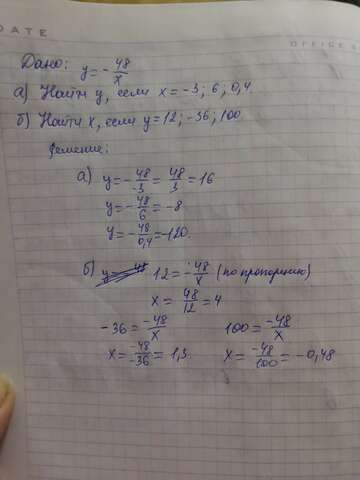 DATE
OFFICE S
Дано: y = - 48/x
а) Найти y, если x = -3; 6; 0,4.
б) Найти x, если y = 12; -36; 100
Решение:
а) y = - 48/-3 = 48/3 = 16
y = - 48/6 = -8
y = - 48/0,4 = -120.
б) 12 = -48/x (по пропорции)
x = 48/12 = 4
-36 = -48/x 100 = -48/x
x = -48/-36 = 1,3. x = -48/100 = -0,48